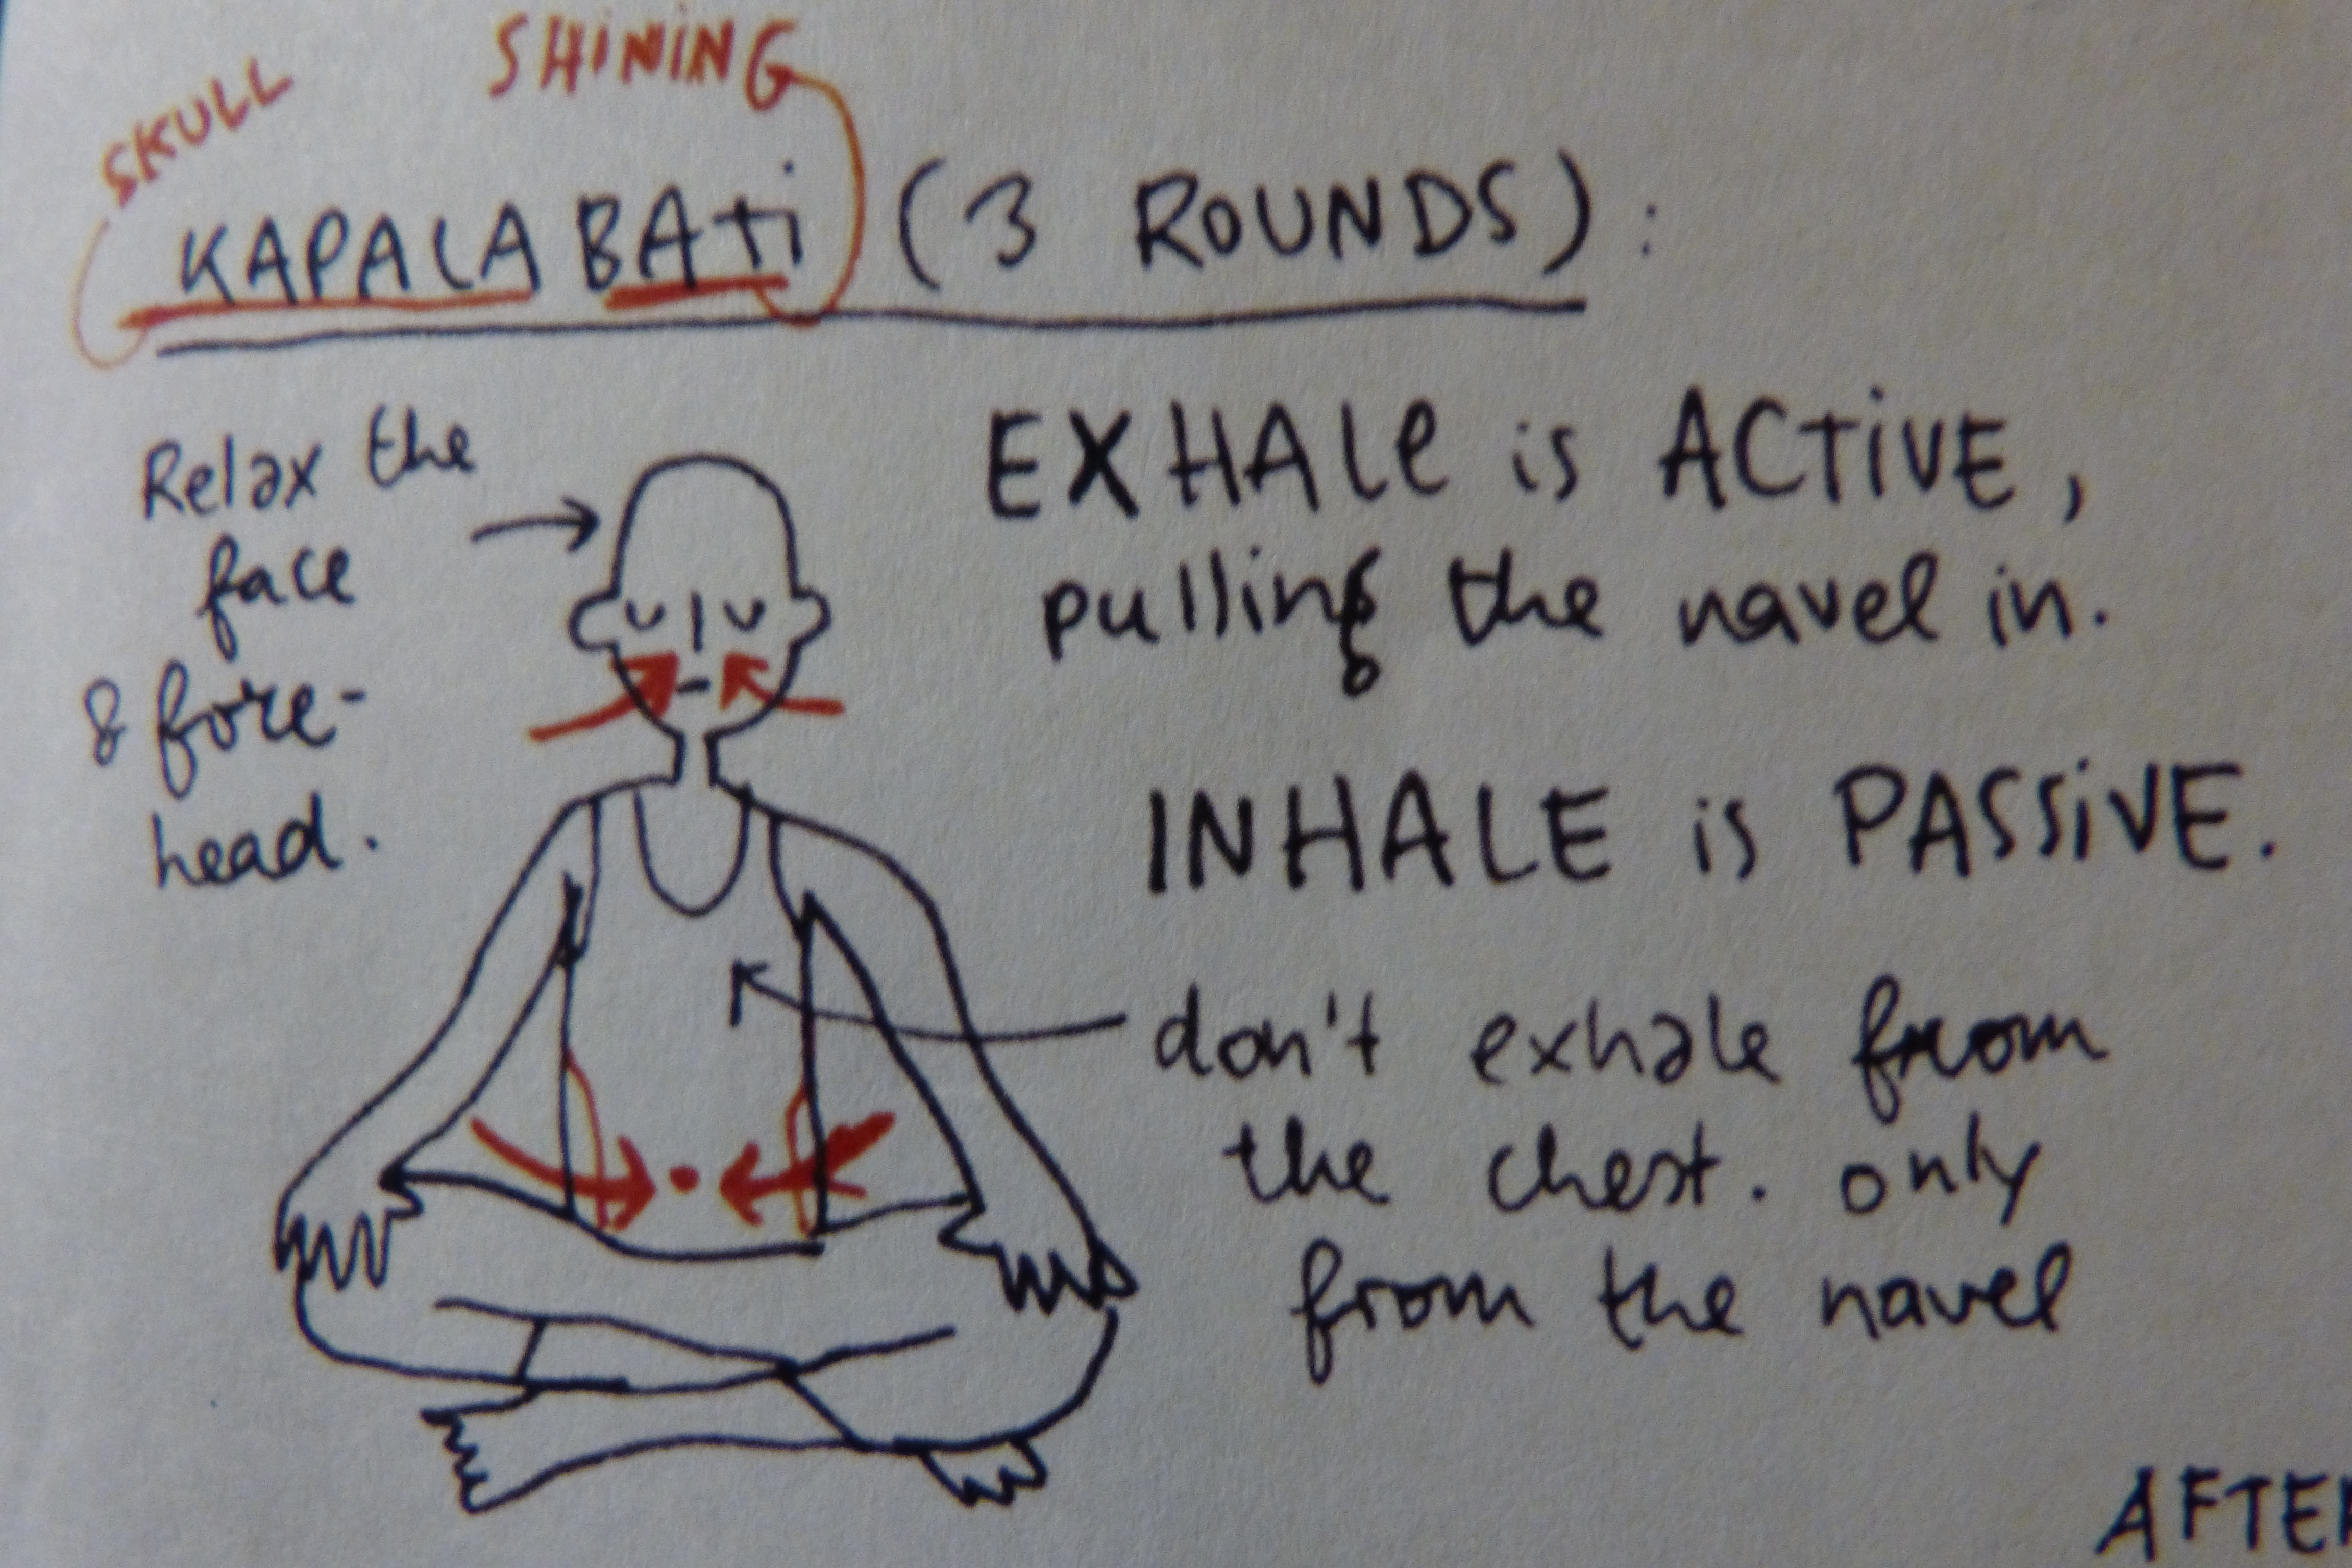 SKULL SHiNiNG
KAPALA BAti (3 ROUNDS):
Relax the
face
& fore-
head.
EXHALe is ACTiVE,
pulling the navel in.
INHALE is PASSiVE.
don't exhale from
the chest. only
from the navel
AFTER